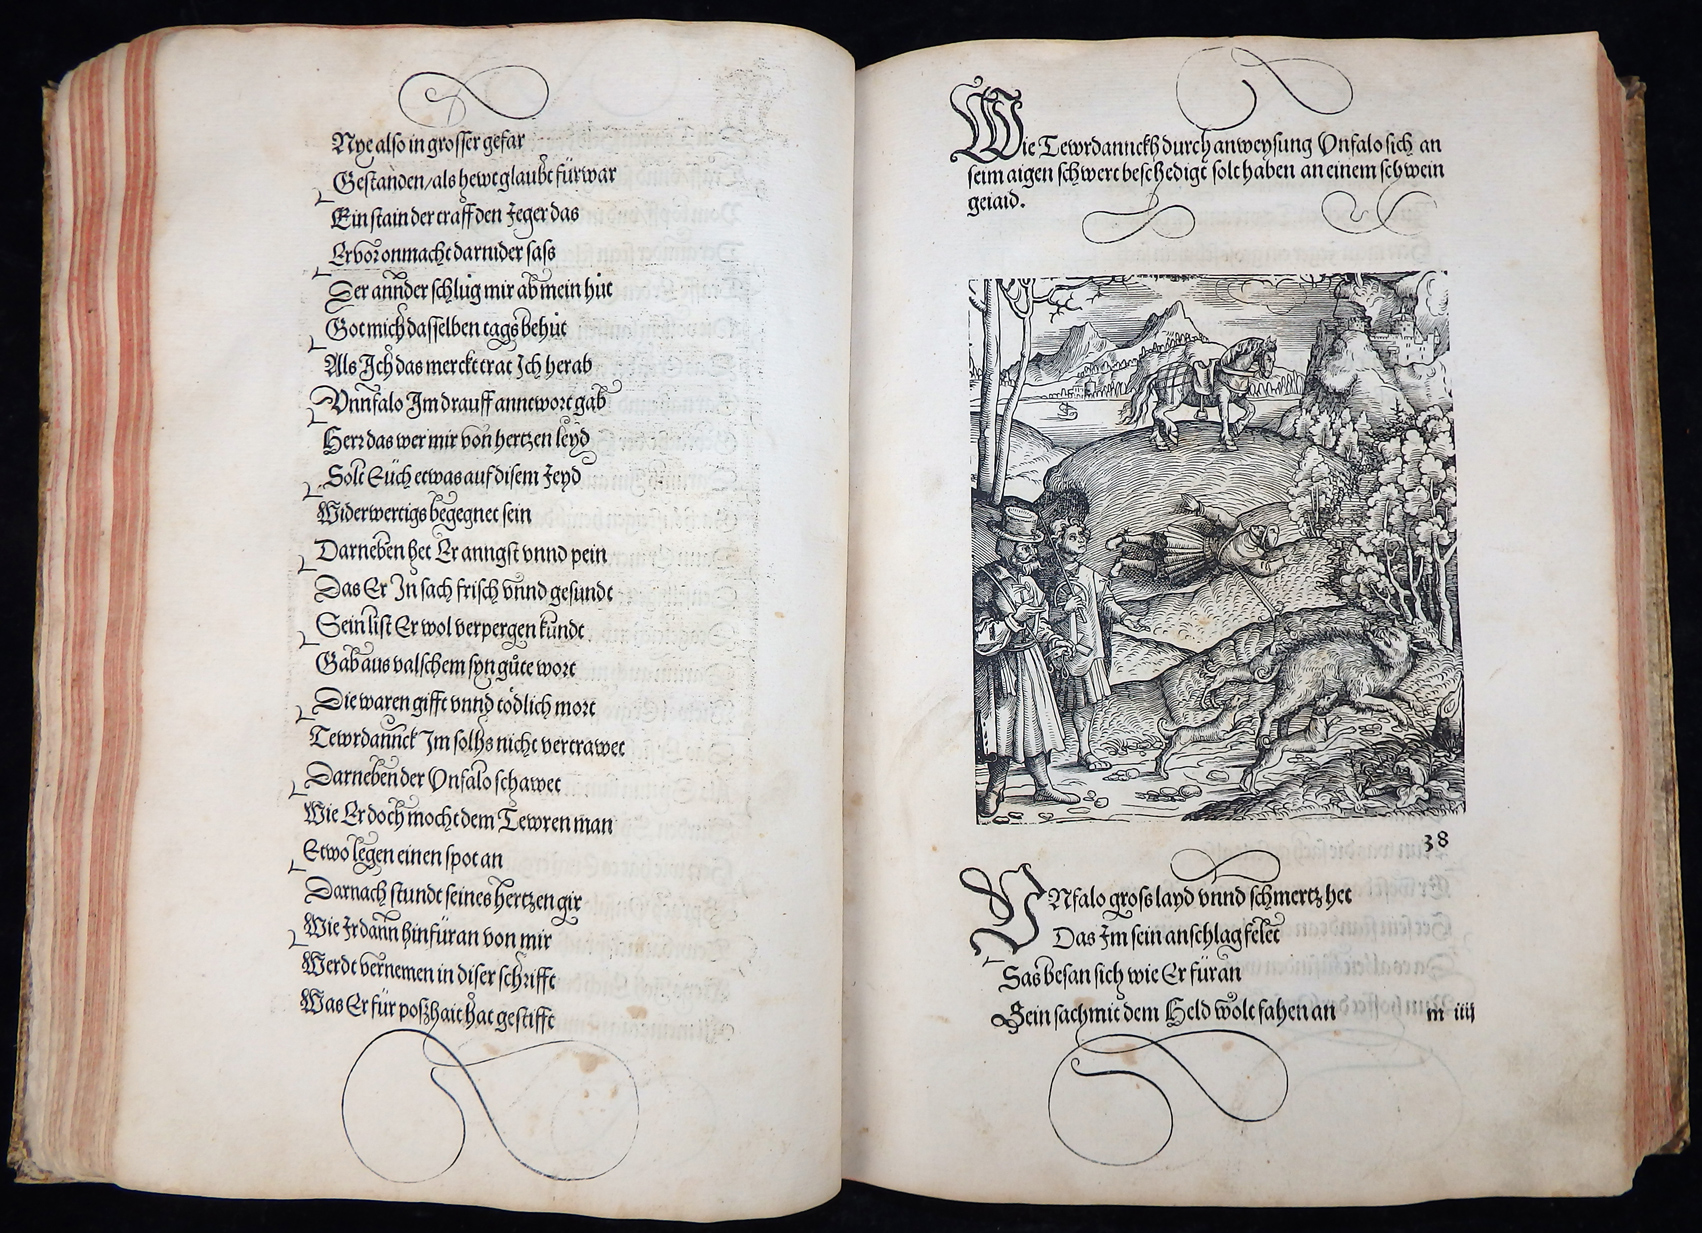 Nye also in grosser gefar
Gestanden/als hewt glaubt fürwar
Ein stain der traff den Jeger das
Er vor onmacht darnider sass
Der annder schlůg mir ab mein hůt
Got mich dasselben tags behůt
Als Ich das merckt trat Ich herab
Vnnfalo Im drauff anntwort gab
Herr das wer mir von hertzen leyd
Solt Eüch etwas auf disem Jeyd
Widerwertigs begegnet sein
Darneben het Er anngst vnnd pein
Das Er In sach frisch vnnd gesundt
Sein list Er wol verpergen kundt
Gab aus valschem syn gůte wort
Die waren gifft vnnd tödlich mort
Tewrdannck Im solhs nicht vertrawet
Darneben der Vnfalo schawet
Wie Er doch mocht dem Tewren man
Etwo legen einen spot an
Darnach stundt seines hertzen gir
Wie Ir dann hinfüran von mir
Werdt vernemen in diser schrifft
Was Er für poszhait hat gestifft
Wie Tewrdannckh durch anweysung Vnfalo sich an
seim aigen schwert beschedigt solt haben an einem schwein
geiaid.
38
VNfalo gross layd vnnd schmertz het
Das Im sein anschlag felet
Sas besan sich wie Er füran
Sein sach mit dem Held wolt fahen an
m iiij